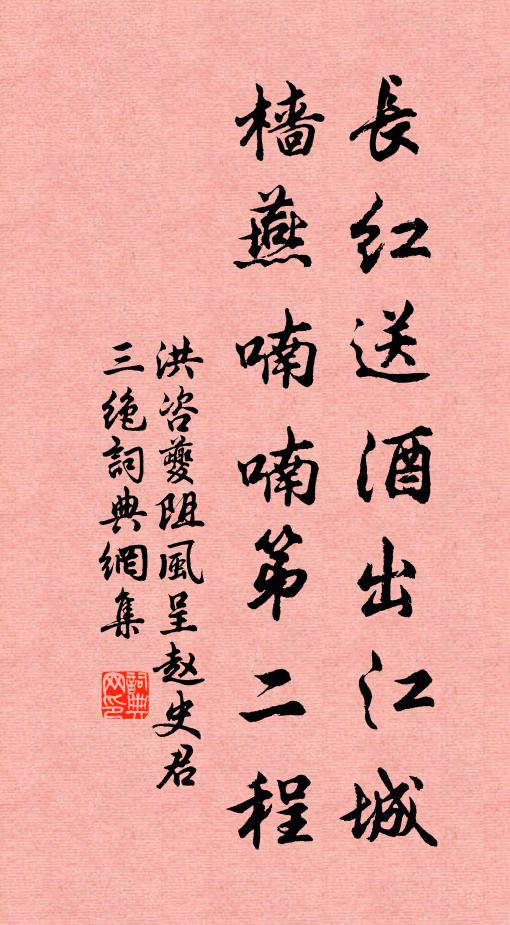 長红送酒出江城
檣燕喃喃第二程
洪咨夔阻風呈赵史君
三绝詞典網集
詞典网印